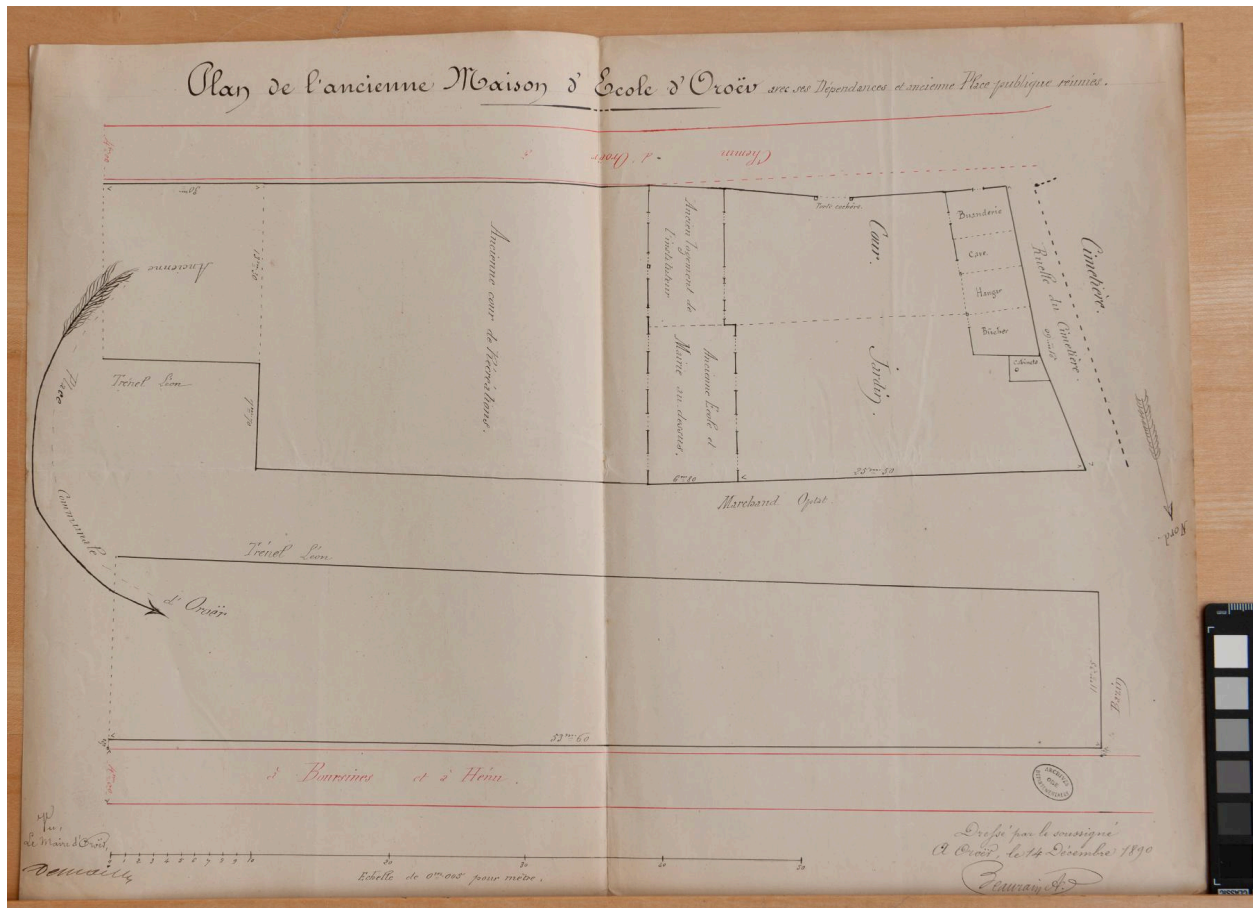 Plan de l'ancienne Maison d'Ecole d'Oroër avec ses Dépendances et ancienne Place publique réunies.
Chemin d'Oroër à
Ancienne
Place
Communale
d'Oroër
Trénel Léon
Ancienne cour de Récréations.
Ancien logement de
l'instituteur
Ancienne Ecole et
Mairie au dessus.
Porte cochère.
Cour.
Jardin.
Buanderie
Cave
Hangar
Bûcher
Cabinets
Ruelle du Cimetière.
Cimetière.
Nord.
7m50
6m10
Marchand Optat.
Trénel Léon
53m60
à et à Hénu.
ARCHIVES
OISE
DÉPARTEMENTALES
Vu,
Le Maire d'Oroër,
0 1 2 3 4 5 6 7 8 9 10 20 30 40 50
Echelle de 0m005 pour mètre.
Dressé par le soussigné
A Oroër, le 14 Décembre 1890
Beaurain A.